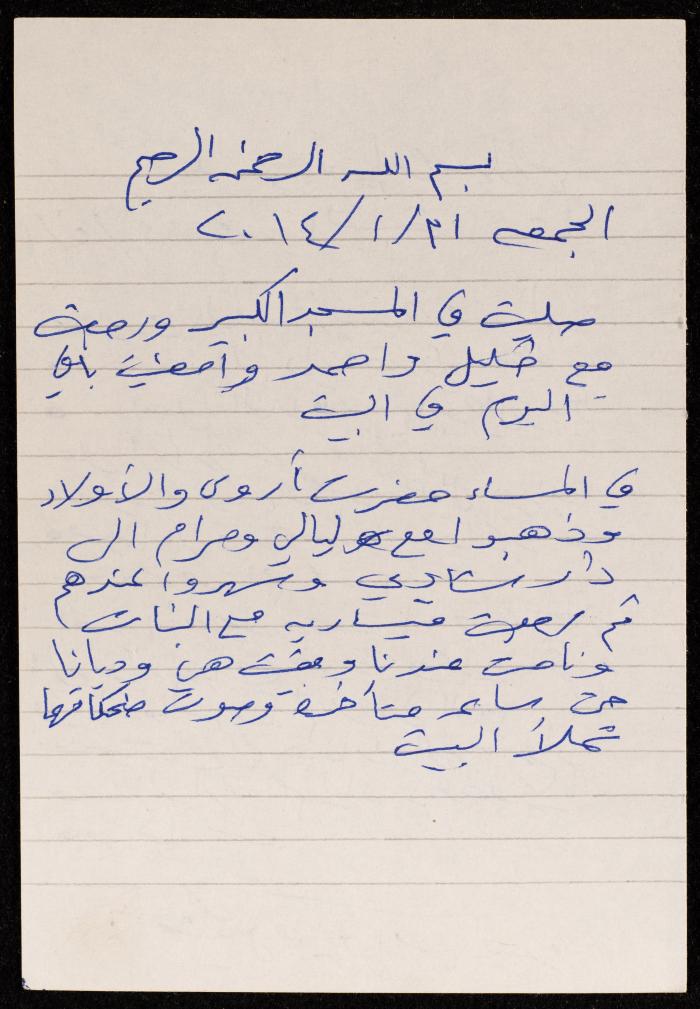 بسم الله الرحمن الرحيم
الجمعه ٣١/١/٢٠١٤
صليت في المسجد الكبير ورحت
مع خليل واحمد وامضيت باقي
اليوم في البيت
في المساء حضرت أروى والأولاد
وذهبوا مع ليالي ومرام الى
دار شادي وسهروا عندهم
ثم رجعت ميساريه مع البنات
ونامت عندنا وبقيت هي وديانا
حتى ساعه متأخرة وصوت ضحكاتهما
تملأ البيت